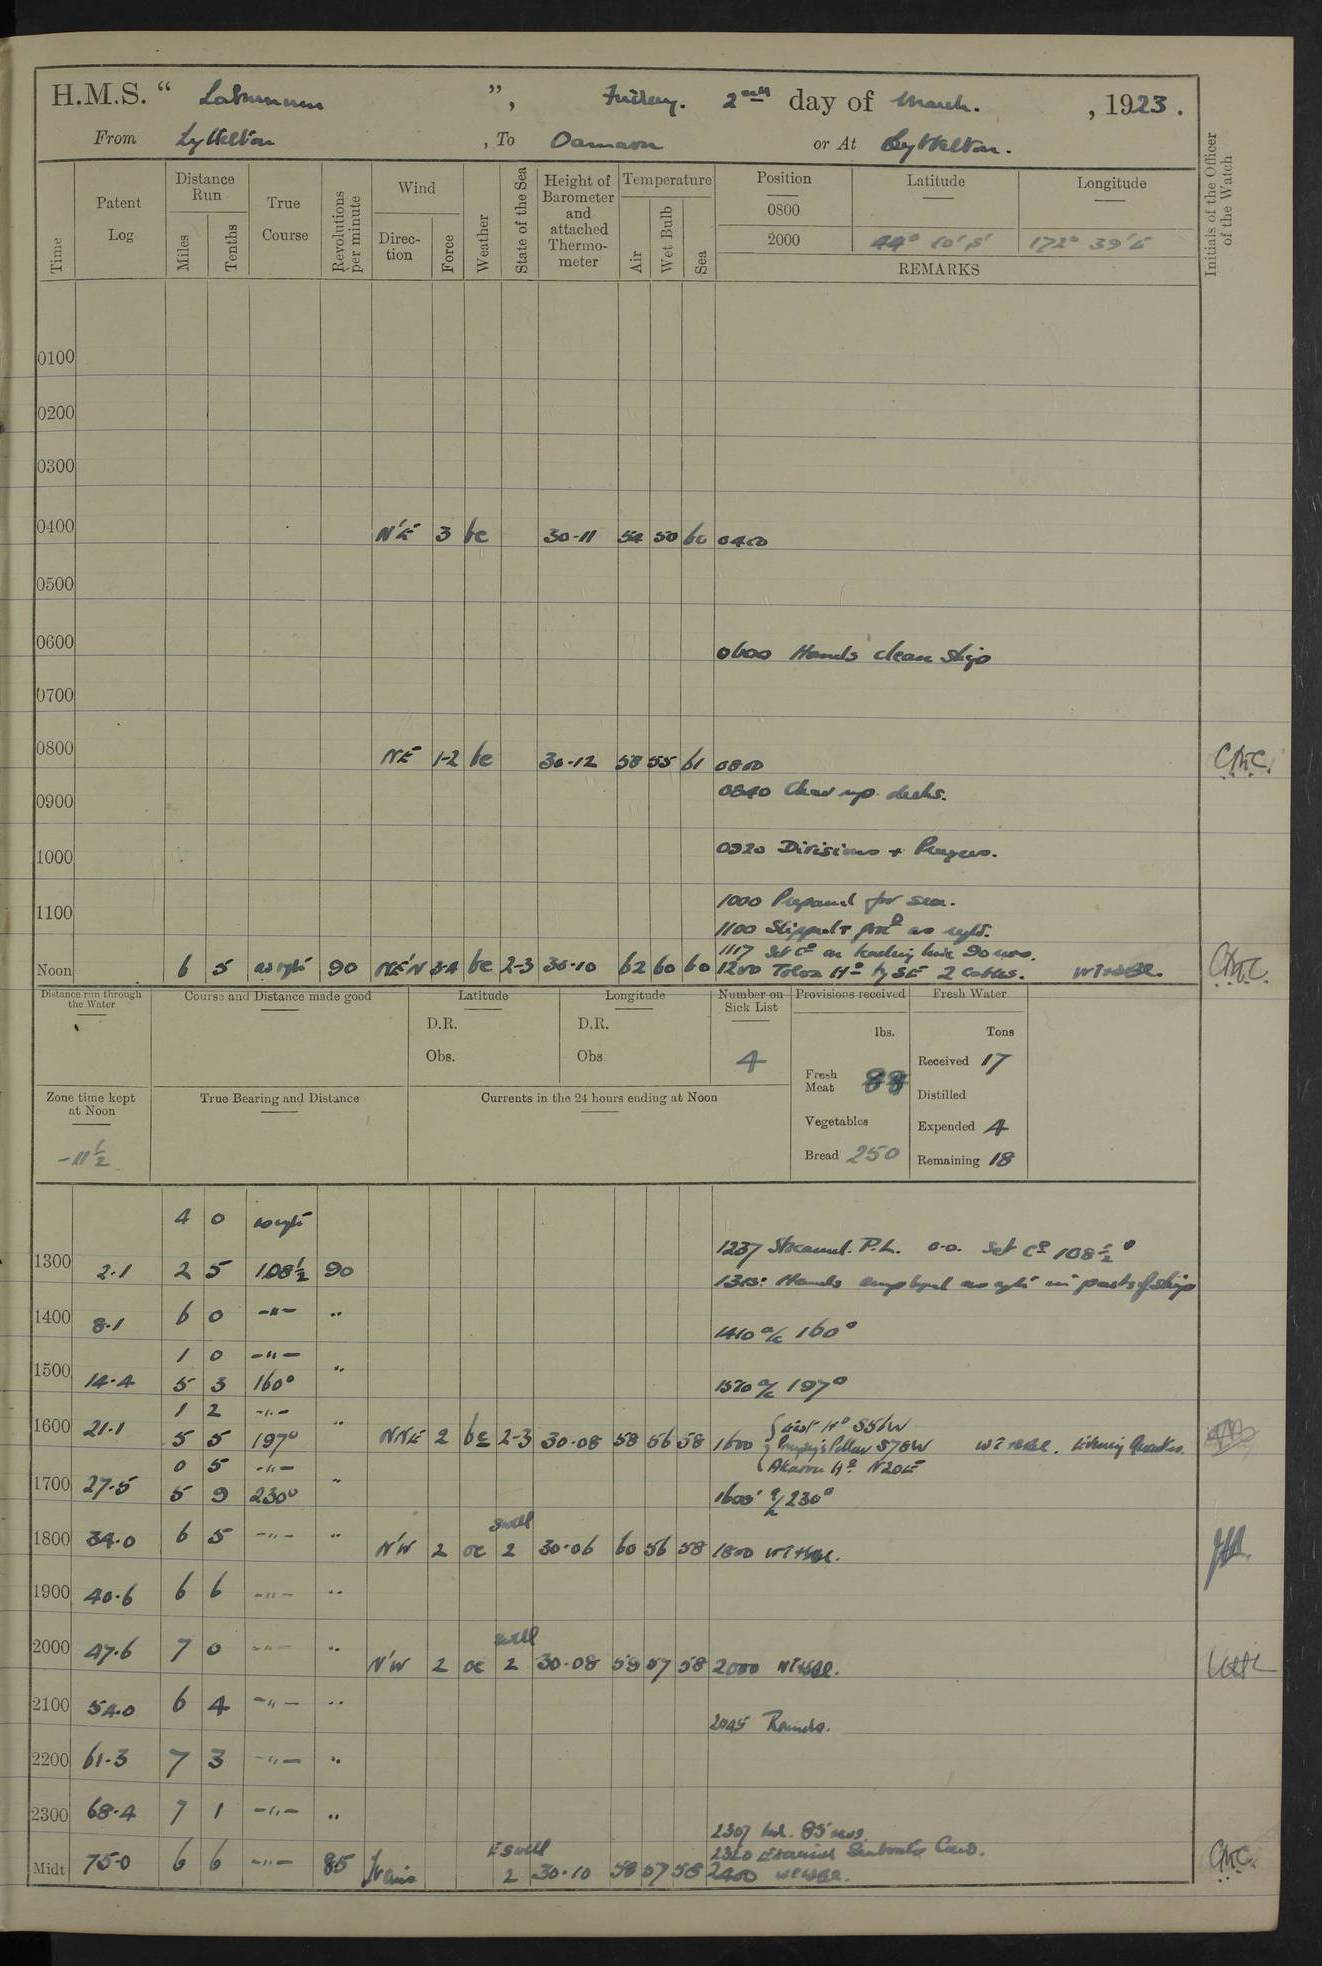 H.M.S. “ Laburnum ”, Friday. 2nd day of March. , 1923.
From Lyttelton , To Oamaru or At Lyttelton.
Time
Patent Log
Distance Run
Miles
Tenths
True Course
Revolutions per minute
Wind
Direction
Force
Weather
State of the Sea
Height of Barometer and attached Thermometer
Temperature
Air
Wet Bulb
Sea
Position
Latitude
Longitude
0800
2000 44° 10' S' 172° 39' E
REMARKS
Initials of the Officer of the Watch
0100
0200
0300
0400 N'E 3 bc 30-11 54 50 60 0400
0500
0600 0600 Hands clean ship
0700
0800 NE 1-2 bc 30-12 58 55 61 0800
0900 0840 Clear up decks.
1000 0920 Divisions + Prayers.
1000 Prepared for sea.
1100 1100 Slipped + procd as reqte.
1117 Set Co on leading line 90 revs.
Noon 6 5 as reqte 90 NE'N 3-4 bc 2-3 30-10 62 60 60 1200 Tolca Hd by SE 2 Cables.
Distance run through the Water
Course and Distance made good
Latitude
D.R.
Obs.
Longitude
D.R.
Obs
Number on Sick List
4
Provisions received
lbs.
Fresh Meat 88
Vegetables
Bread 250
Fresh Water
Tons
Received 17
Distilled
Expended 4
Remaining 18
Zone time kept at Noon
-11½
True Bearing and Distance
Currents in the 24 hours ending at Noon
4 0 as reqte
1237 Streamed P.L. 0.0. Set Co 108½°
1300 2.1 2 5 108½ 90
Hands employed as reqte in parts of ship
1400 8.1 6 0 -"- "
1410 a/c 160°
1 0 -"-
1500 14.4 5 3 160° "
1510 a/c 197°
1 2 -"-
1600 21.1 5 5 197° " NNE 2 bc 2-3 30-08 58 56 58 1600 East Hd S56W
Pompey's Pillar S78W
Akaroa Hd N20E
0 5 -"-
1700 27.5 5 9 230° "
1605 a/c 230°
1800 34.0 6 5 -"- " N'W 2 oc swell 2 30-06 60 56 58 1800
1900 40.6 6 6 -"- "
2000 47.6 7 0 -"- " N'W 2 oc swell 2 30-08 59 57 58 2000
2100 54.0 6 4 -"- "
2045 Rounds.
2200 61.3 7 3 -"- "
2300 68.4 7 1 -"- "
2307 Red. 85 revs.
2320 Exercised Seaboats Crew.
Midt 75.0 6 6 -"- 85 E swell 2 30-10 58 57 58 2400